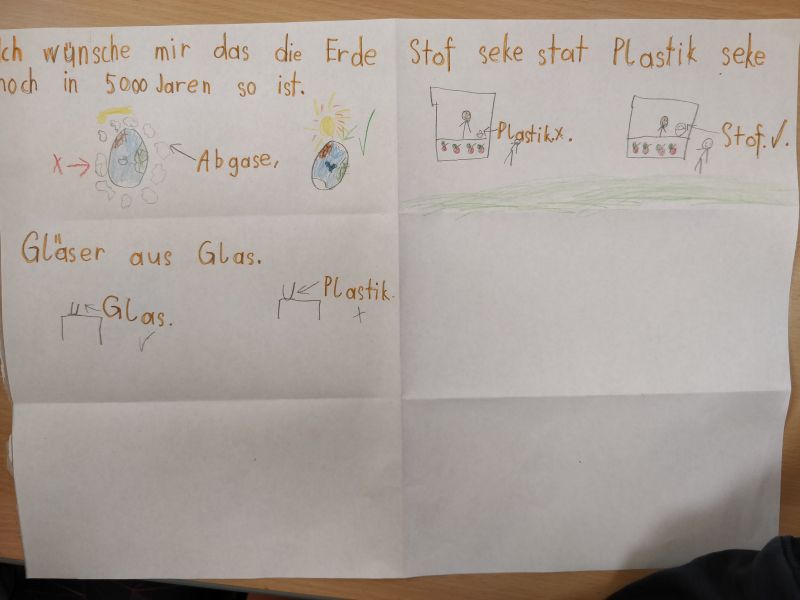 Ich wünsche mir das die Erde
noch in 5000 Jaren so ist.
x
Abgase,
Stof seke stat Plastik seke
Plastik.x.
Stof.✓.
Gläser aus Glas.
Glas.
✓
Plastik.
x